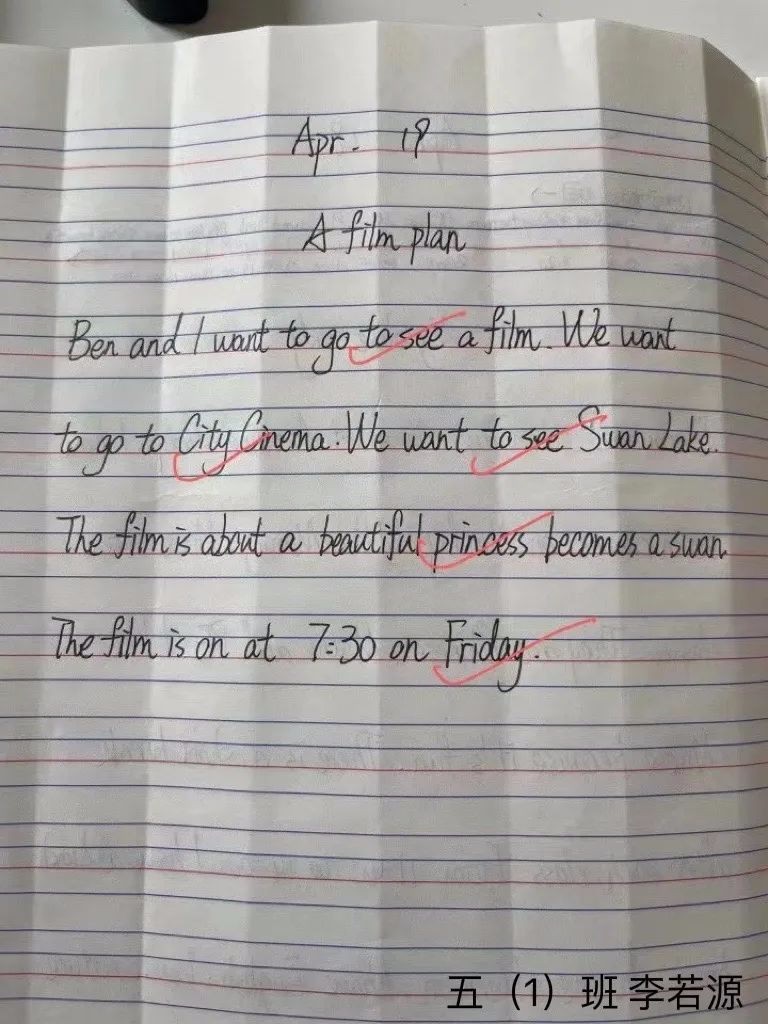 Apr. 19
A film plan
Ben and I want to go to see a film. We want
to go to City Cinema. We want to see Swan Lake.
The film is about a beautiful princess becomes a swan
The film is on at 7:30 on Friday.
五（1）班 李若源